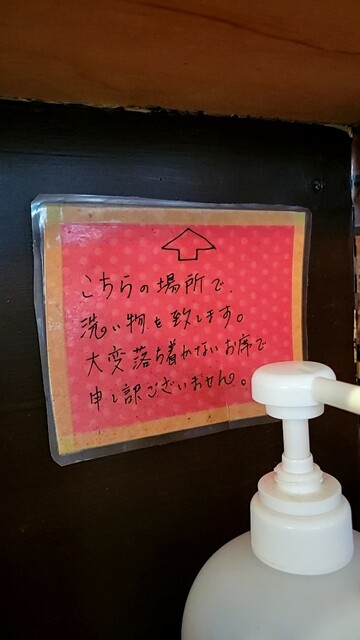 こちらの場所で、
洗い物を致します。
大変落ち着かないお席で
申し訳ございません。